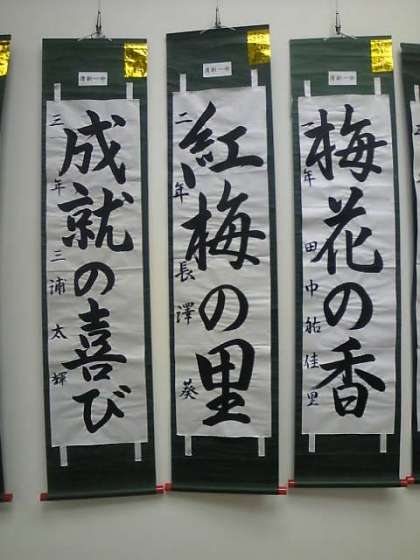 梅花の香
一年 田中
紅梅の里
二年 長澤 葵
成就の喜び
三年 三浦太輝